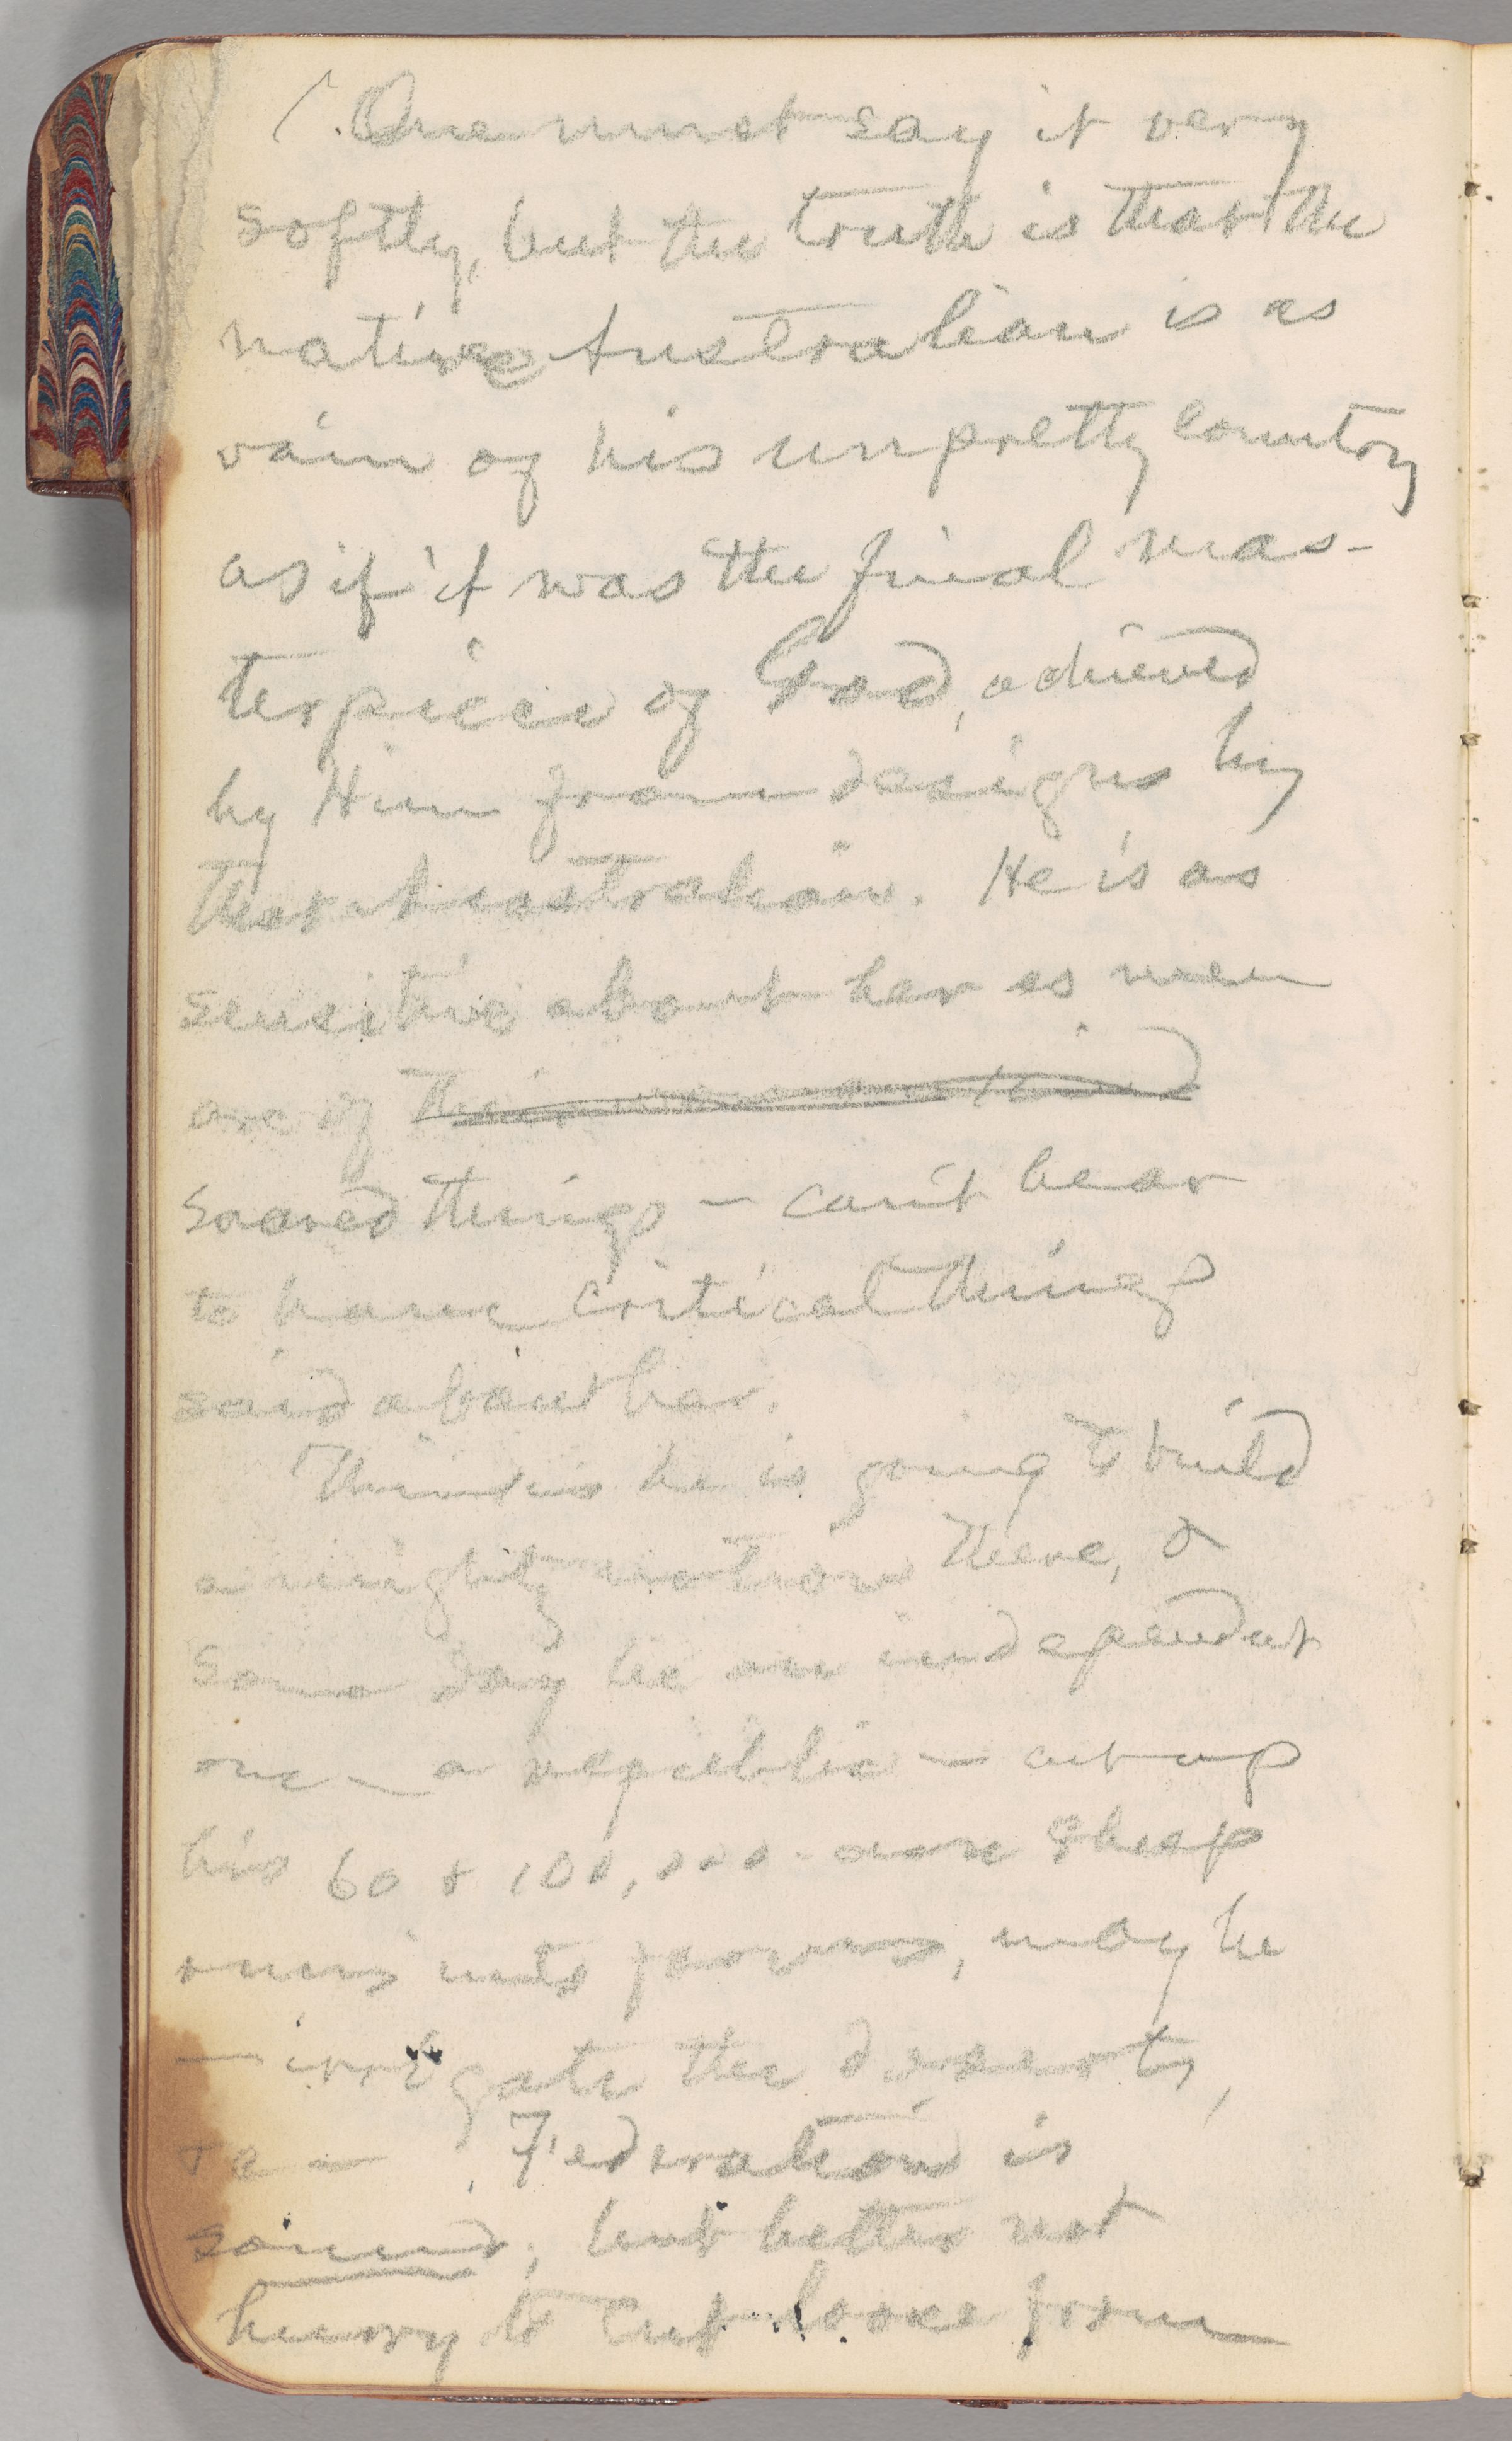 (One must say it very
softly, but the truth is that the
native Australian is as
vain of his unpretty country
as if it was the final mas-
terpiece of God, achieved
by Him from designs by
that Australian. He is as
sensitive about her as men
are of
sacred things — can't bear
to have critical things
said about her.
Thinks he is going to build
a mighty nation there, &
some day be an independent
one — a republic — cut up
his 60 & 100,000-acre sheep
runs into farms, may be
— irrigate the deserts,
Federation is
sound, but better not
hurry to cut loose from